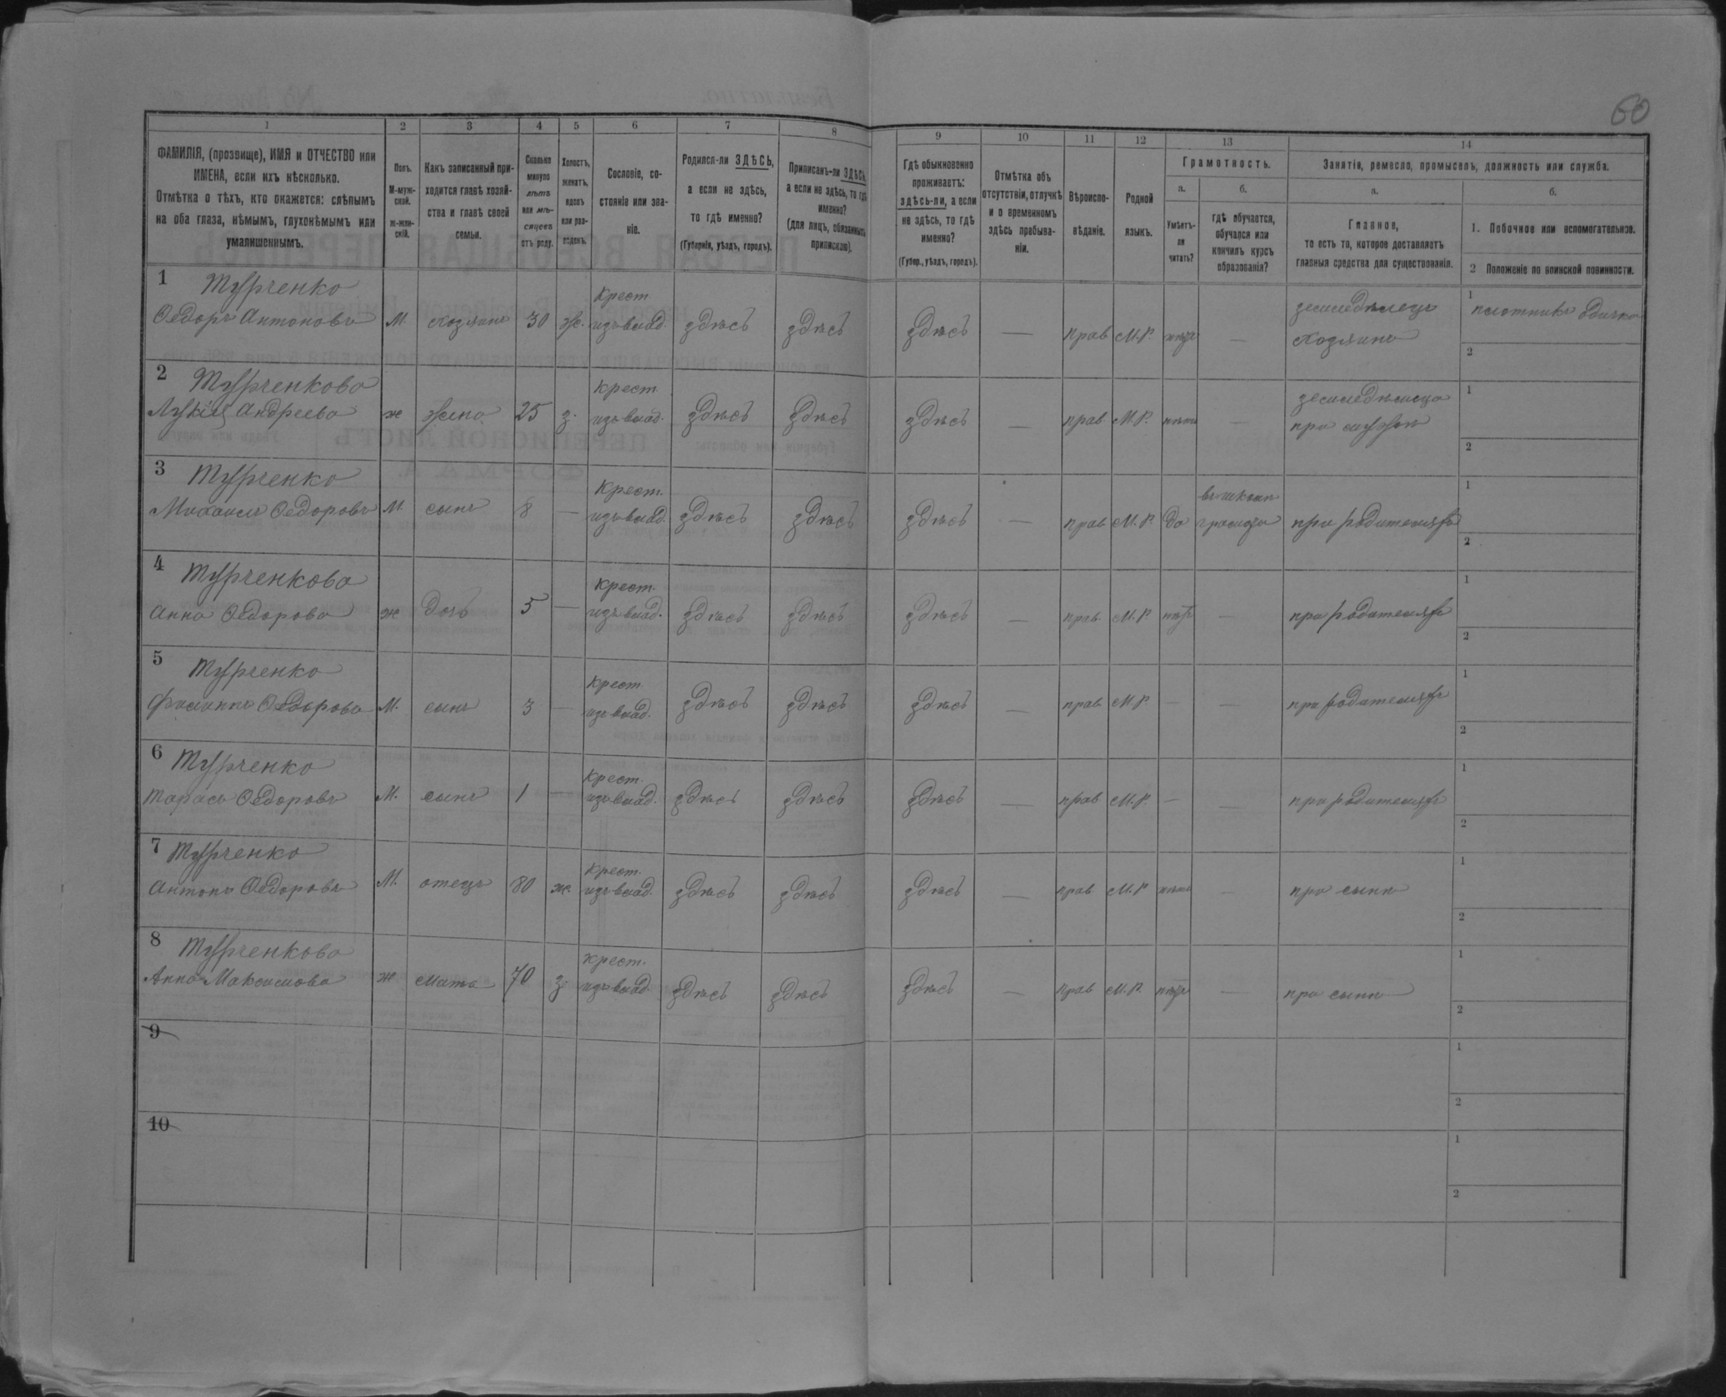 60
1 2 3 4 5 6 7 8 9 10 11 12 13 14
ФАМИЛІЯ, (прозвище), ИМЯ и ОТЧЕСТВО или ИМЕНА, если ихъ нѣсколько.
Отмѣтка о тѣхъ, кто окажется: слѣпымъ на оба глаза, нѣмымъ, глухонѣмымъ или умалишеннымъ.
Полъ. М-мужской. ж-женскій.
Какъ записанный приходится главѣ хозяйства и главѣ своей семьи.
Сколько минуло лѣтъ или мѣсяцевъ отъ роду.
Холостъ, женатъ, вдовъ или разведенъ.
Сословіе, состояніе или званіе.
Родился-ли ЗДѢСЬ, а если не здѣсь, то гдѣ именно?
(Губернія, уѣздъ, городъ).
Приписанъ-ли ЗДѢСЬ, а если не здѣсь, то гдѣ именно?
(для лицъ, обязанныхъ припискою).
Гдѣ обыкновенно проживаетъ: здѣсь-ли, а если не здѣсь, то гдѣ именно?
(Губер., уѣздъ, городъ).
Отмѣтка объ отсутствіи, отлучкѣ и о временномъ здѣсь пребываніи.
Вѣроисповѣданіе.
Родной языкъ.
Грамотность.
а. Умѣетъ-ли читать?
б. гдѣ обучается, обучался или кончилъ курсъ образованія?
Занятіе, ремесло, промыселъ, должность или служба.
а. Главное, то есть то, которое доставляетъ главныя средства для существованія.
б. 1. Побочное или вспомогательное.
2 Положеніе по воинской повинности.
1 Турченко Крест земледѣлецъ 1 плотникъ
Ѳедоръ Антоновъ М. хозяинъ 30 ж. изъ влад. здѣсь здѣсь здѣсь — прав М.Р. нѣтъ — хозяинъ 2
2 Турченкова Крест. 1
Андреева ж жена 25 з. изъ влад. здѣсь здѣсь здѣсь — прав М.Р. нѣтъ — при мужѣ 2
3 Турченко Крест. въ школѣ 1
Михаилъ Ѳедоровъ М сынъ 8 — изъ влад. здѣсь здѣсь здѣсь — прав М.Р. да грамоты при родителяхъ 2
4 Турченкова Крест. 1
Анна Ѳедорова ж дочь 5 — изъ влад. здѣсь здѣсь здѣсь — прав. М.Р. нѣтъ — при родителяхъ 2
5 Турченко Крест. 1
Ѳедоровъ М. сынъ 3 — изъ влад. здѣсь здѣсь здѣсь — прав. М.Р. — — при родителяхъ 2
6 Турченко Крест. 1
Тарасъ Ѳедоровъ М. сынъ 1 — изъ влад. здѣсь здѣсь здѣсь — прав М.Р. — — при родителяхъ 2
7 Турченко Крест. 1
Антонъ Ѳедоровъ М. отецъ 80 ж. изъ влад. здѣсь здѣсь здѣсь — прав М.Р. нѣтъ — при сынѣ 2
8 Турченкова Крест. 1
Анна Максимова ж мать 70 з изъ влад. здѣсь здѣсь здѣсь — прав М.Р. нѣтъ — при сынѣ 2
9 1
2
10 1
2